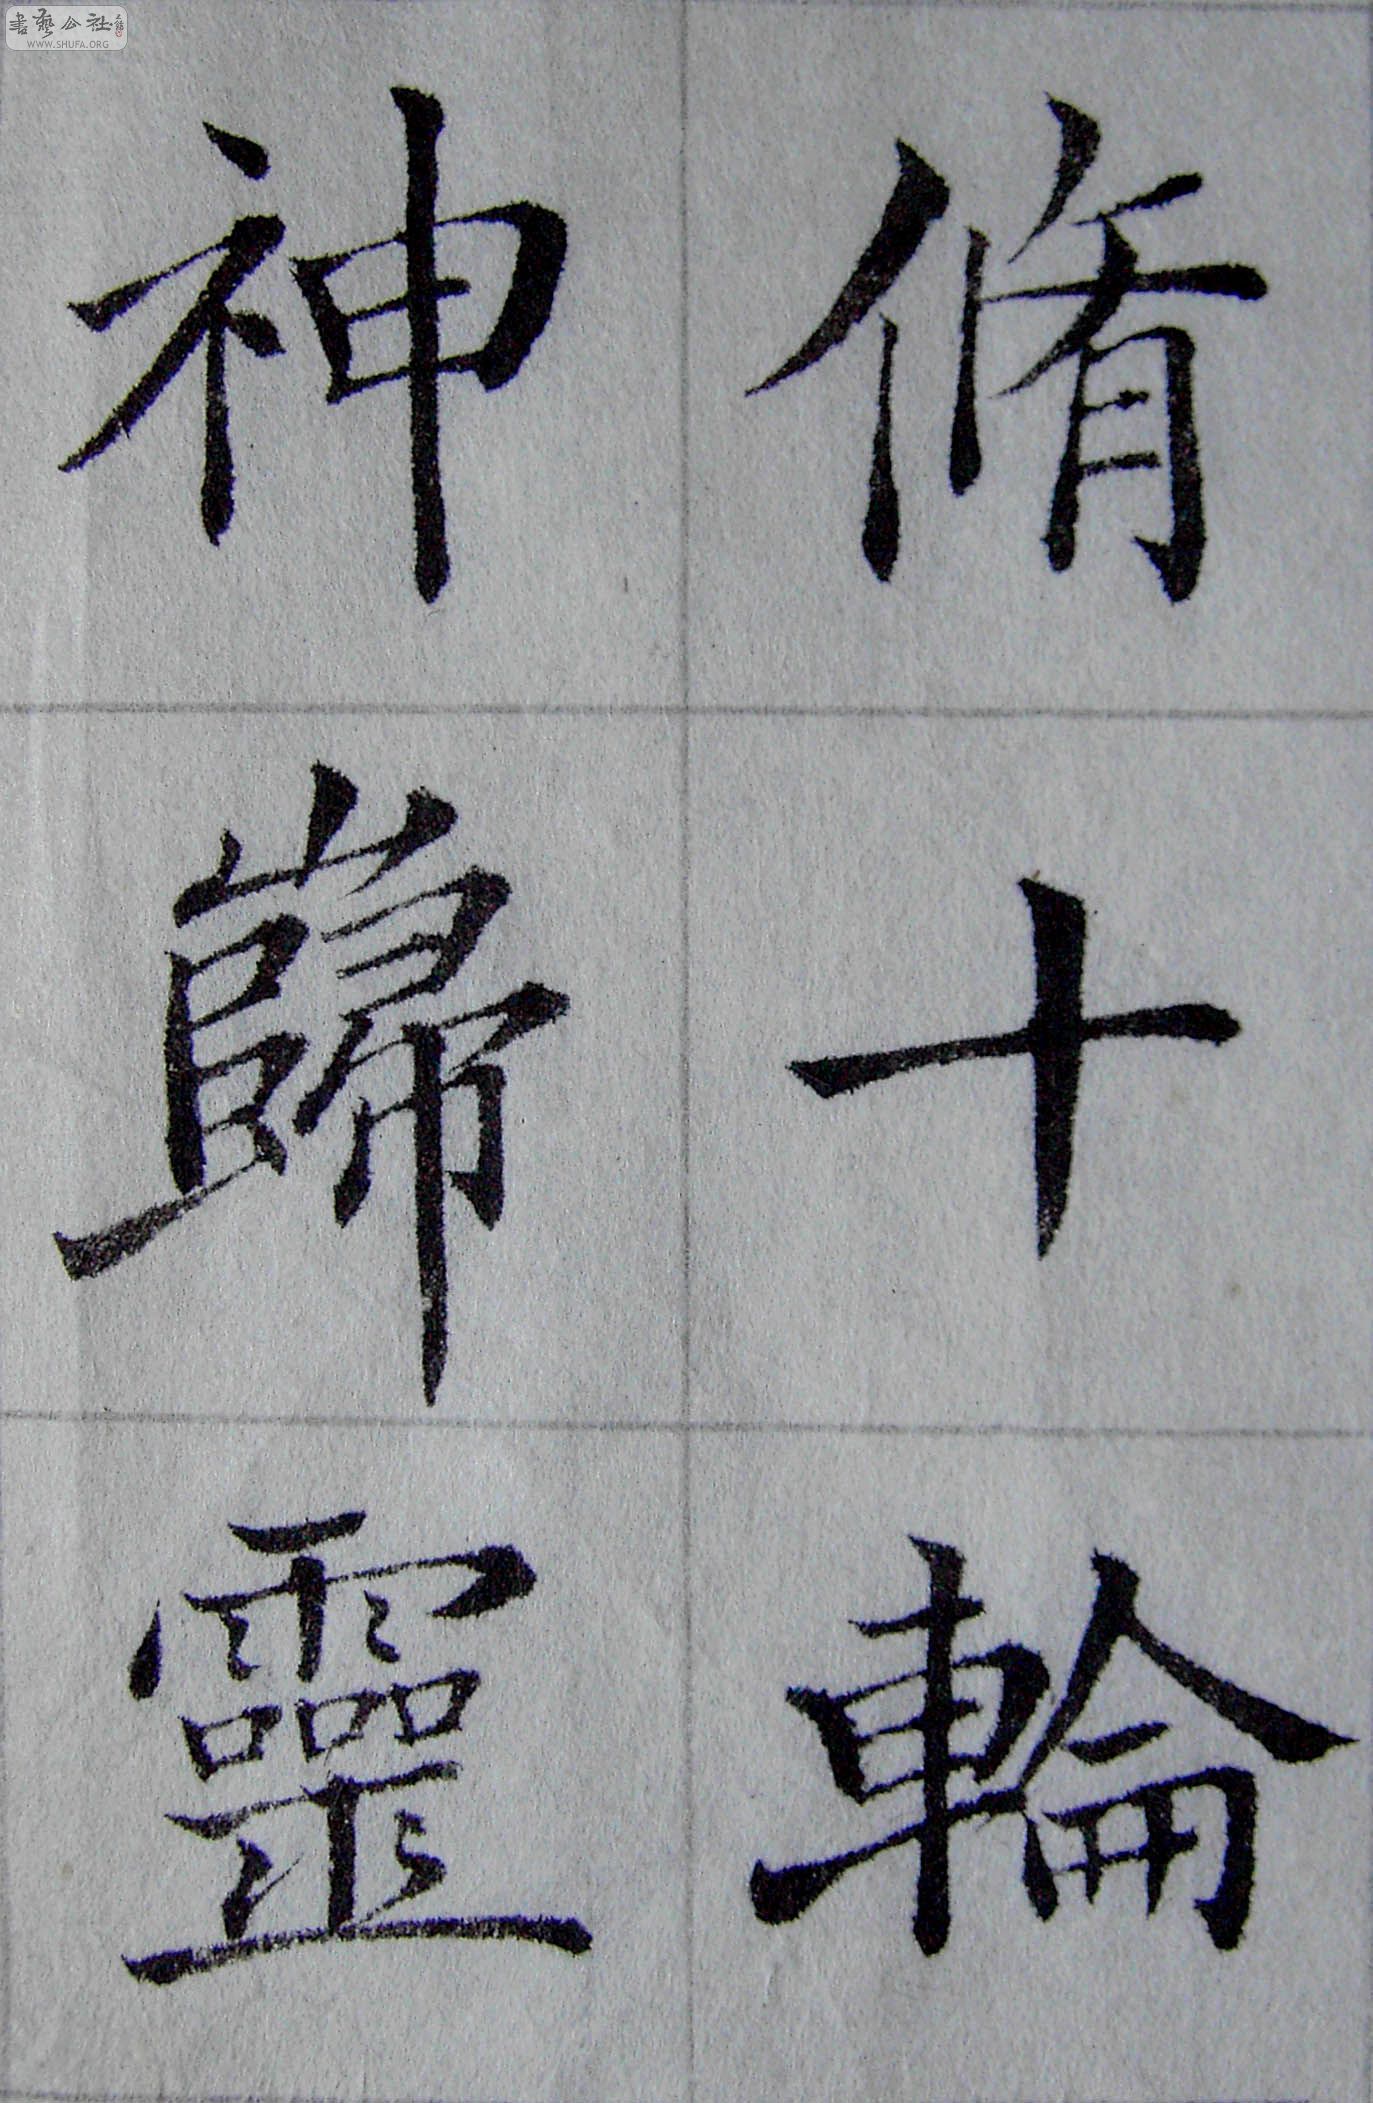 脩十輪
神歸靈
書藝公社
WWW.SHUFA.ORG